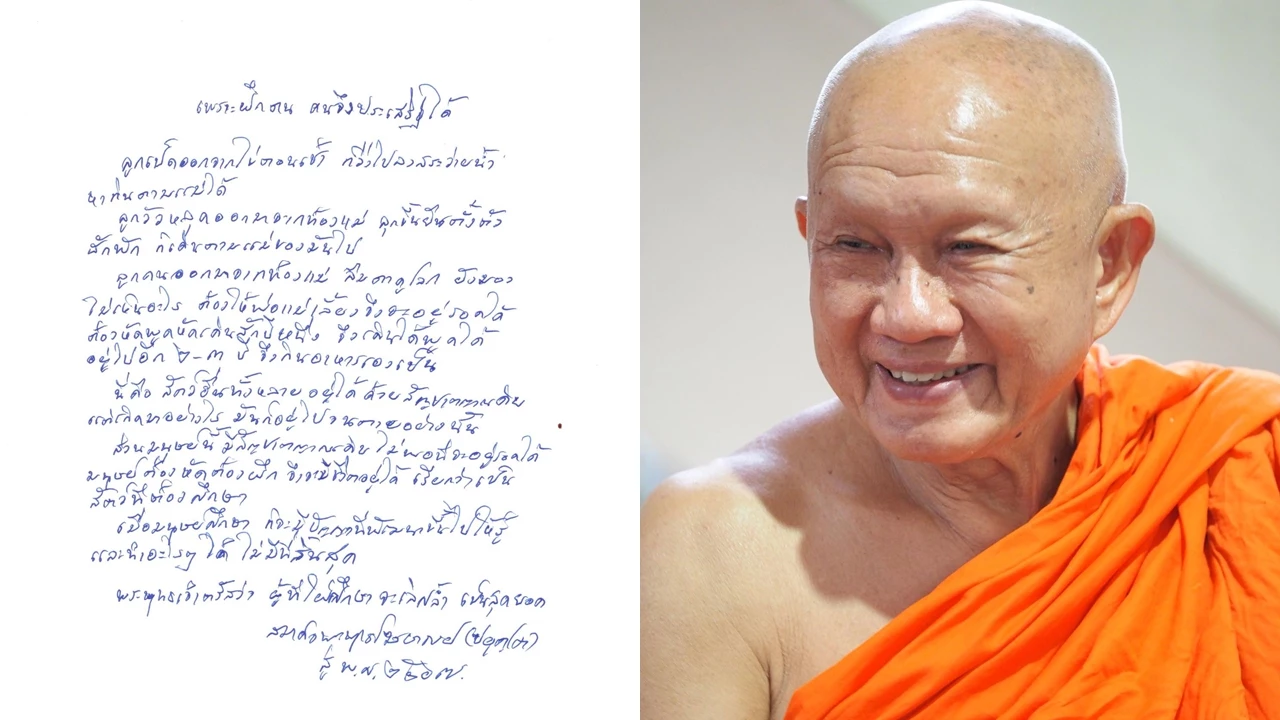 เพราะฝึกตน คนจึงประเสริฐได้
ลูกเป็ดออกจากไข่ตอนเช้า ก็วิ่งไปลงสระว่ายน้ำ
หากินตามแม่ได้
ลูกวัวหลุดออกมาจากท้องแม่ ลุกขึ้นยืนตั้งตัว
สักพัก ก็เดินตามแม่ของมันไป
ลูกคนออกมาจากท้องแม่ ลืมตาดูโลก ยังมอง
ไม่เห็นอะไร ต้องให้พ่อแม่เลี้ยงจึงจะอยู่รอดได้
ต้องหัดพูดหัดเดินสักปีหนึ่ง จึงเดินได้พูดได้
อยู่ไปอีก ๒-๓ ปี จึงกินอาหารเองเป็น
นี่คือ สัตว์อื่นทั้งหลาย อยู่ได้ด้วยสัญชาตญาณเดิม
แต่เกิดมาอย่างไร มันก็อยู่ไปจนตายอย่างนั้น
ส่วนมนุษย์นี้ มีสัญชาตญาณเดิม ไม่พอที่จะอยู่รอดได้
มนุษย์ต้องหัดต้องฝึก จึงจะมีชีวิตอยู่ได้ เรียกว่าเป็น
สัตว์ที่ต้องศึกษา
เมื่อมนุษย์ศึกษา ก็จะมีปัญญาที่พัฒนาขึ้นไปให้รู้
และทำอะไรๆ ได้ ไม่มีที่สิ้นสุด
พระพุทธเจ้าตรัสว่า ผู้ที่ใฝ่ศึกษา จะเลิศล้ำ เป็นสุดยอด
สมเด็จพระพุทธโฆษาจารย์ (ป.อ. ปยุตฺโต)
สู่ พ.ศ. ๒๕๖๗.